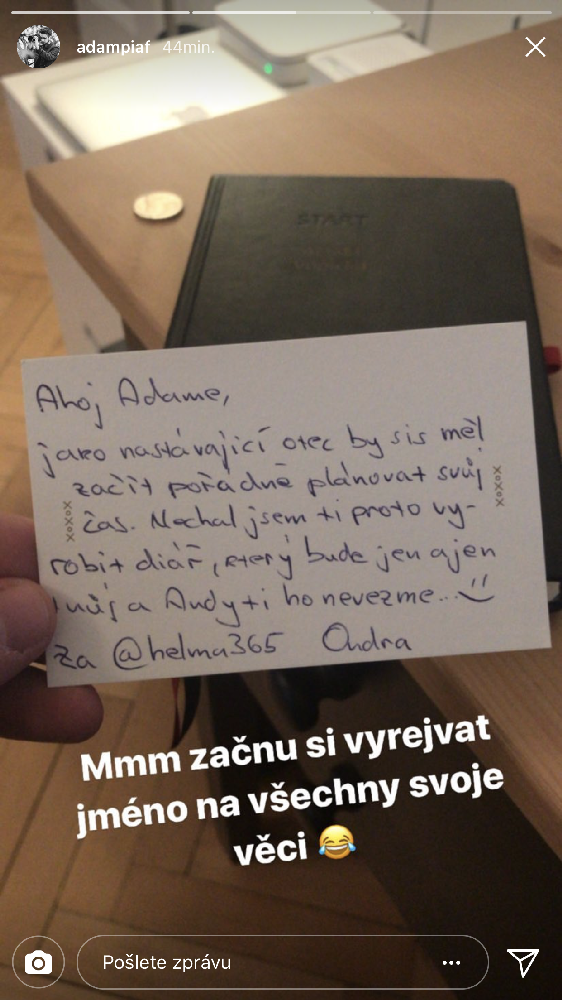 adampiaf 44min.
START
Ahoj Adame,
jako nastávající otec by sis měl
začít pořádně plánovat svůj
čas. Nechal jsem ti proto vy-
robit diář, který bude jen a jen
tvůj a Andy ti ho nevezme... :)
Za @helma365 Ondra
Mmm začnu si vyrejvat
jméno na všechny svoje
věci 😂
Pošlete zprávu